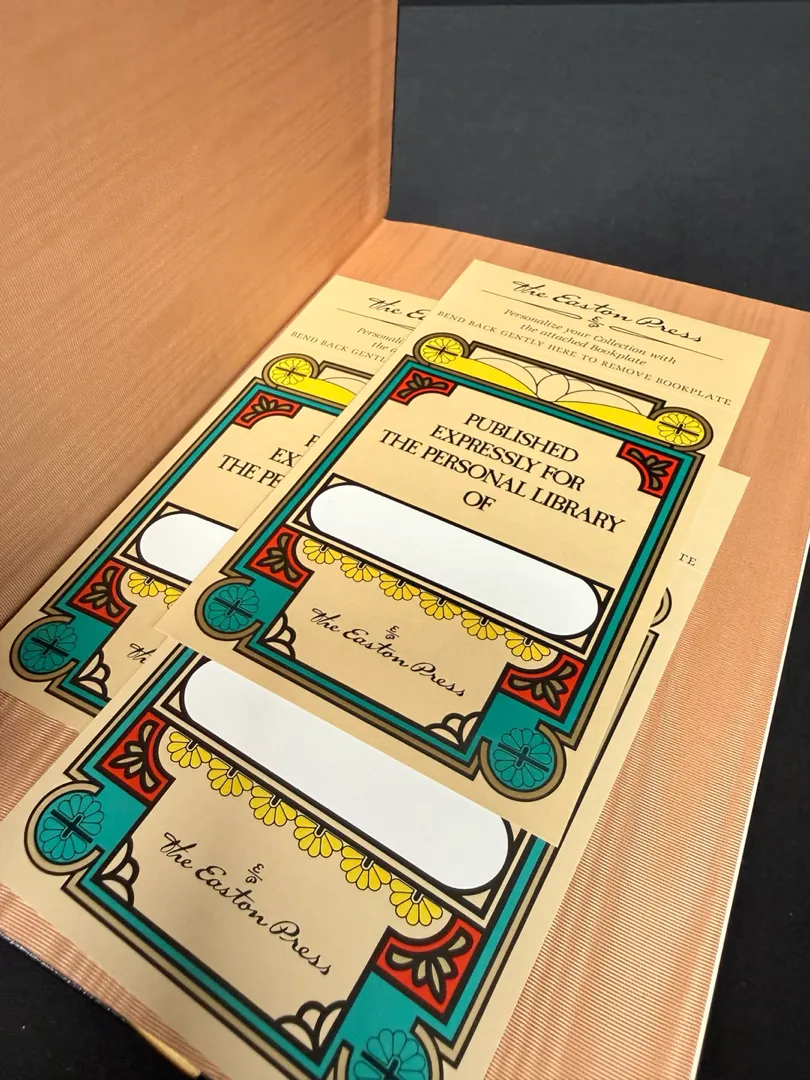 The Easton Press
E
P
Personalize your Collection with
the attached Bookplate
BEND BACK GENTLY HERE TO REMOVE BOOKPLATE
PUBLISHED
EXPRESSLY FOR
THE PERSONAL LIBRARY
OF
E
P
The Easton Press
The E
Personali
the a
BEND BACK GENTL
P
EX
THE PE
Th
TE
E
P
The Easton Press